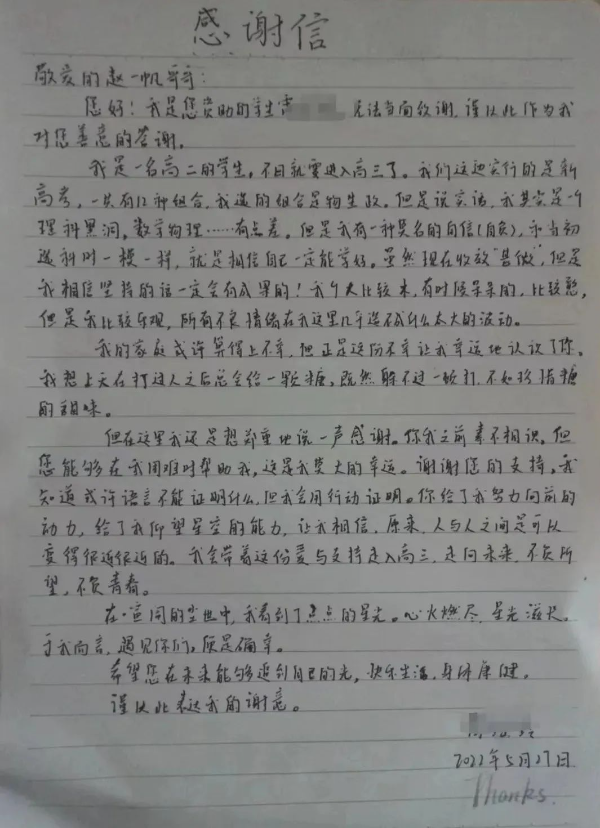 感谢信
敬爱的赵一帆哥哥:
您好！我是您资助的学生 无法当面致谢,谨以此作为我
对您善意的答谢。
我是一名高二的学生,不日就要进入高三了。我们这边实行的是新
高考,一共有12种组合,我选的组合是物生政。但是说实话,我其实是个
理科黑洞,数学物理……有点差。但是我有一种莫名的自信(自负),和当初
选科时一模一样,就是相信自己一定能学好。虽然现在收效"甚微",但是
我相信坚持的话一定会有成果的！我个人比较木,有时候呆呆的,比较憨,
但是我比较乐观,所有不良情绪在我这里几乎造不成什么太大的波动。
我的家庭或许算得上不幸,但正是这份不幸让我幸运地认识了你。
我想上天在打过人之后总会给一颗糖,既然躲不过一顿打,不如珍惜糖
的甜味。
但在这里我还是想郑重地说一声感谢。你我之前素不相识,但
您能够在我困难时帮助我,这是我莫大的幸运。谢谢您的支持,我
知道或许语言不能证明什么,但我会用行动证明。你给了我努力向前的
动力,给了我仰望星空的能力,让我相信,原来,人与人之间是可以
变得很近很近的。我会带着这份爱与支持走入高三,走向未来,不负所
望,不负青春。
在喧闹的尘世中,我看到了点点的星光。心火燃尽,星光滋长。
于我而言,遇见你们,便是确幸。
希望您在未来能够追到自己的光,快乐生活,身体康健。
谨以此表达我的谢意。
2022年5月27日
Thanks.